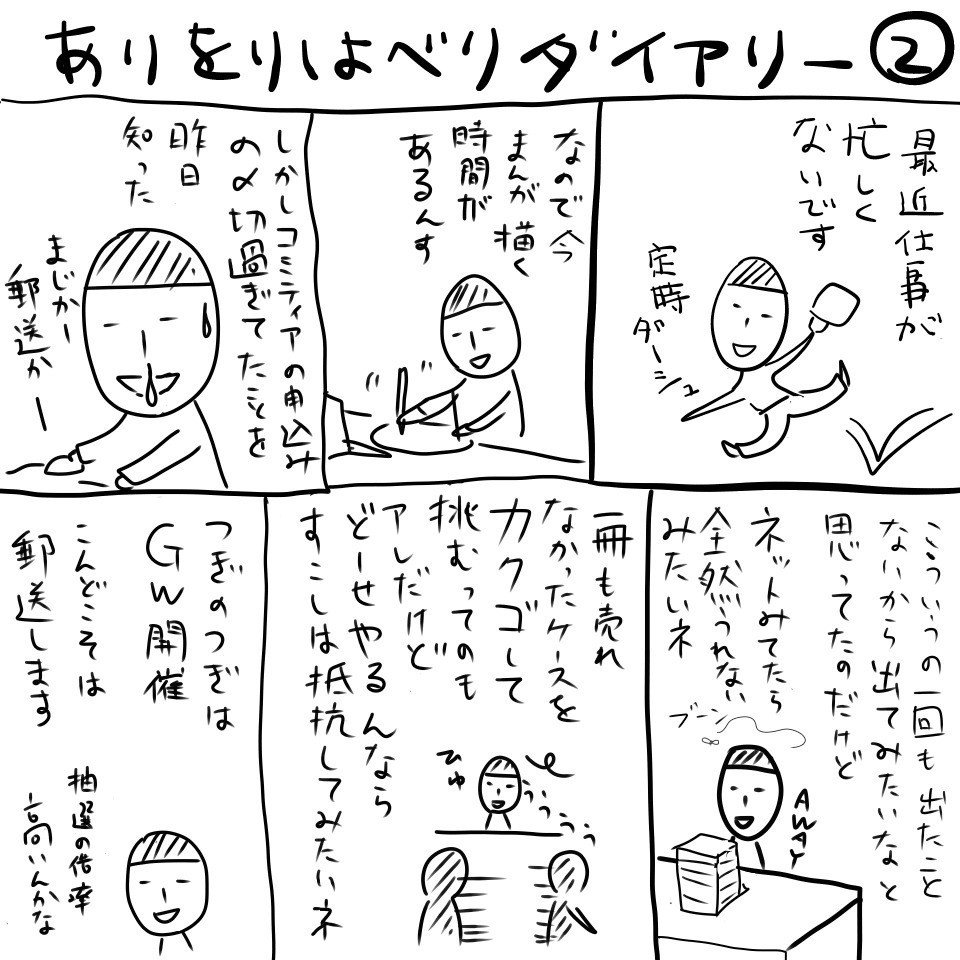 ありをりはべりダイアリー②
最近仕事が
忙しく
ないです
定時
ダーシュ
なので今
まんが描く
時間が
あるんす
しかしコミティアの申込み
の〆切過ぎてたことを
昨日
知った
まじかー
郵送かー
こういうの一回も出たこと
ないから出てみたいなと
思ってたのだけど
ネットみてたら
全然うれない
みたいネ
ブーン
AWAY
一冊も売れ
なかったケースを
カクゴして
挑むってのも
アレだけど
どーせやるんなら
すこしは抵抗してみたいネ
ひゅ
ううううう
つぎのつぎは
GW開催
こんどこそは
郵送します
抽選の倍率
高いんかな